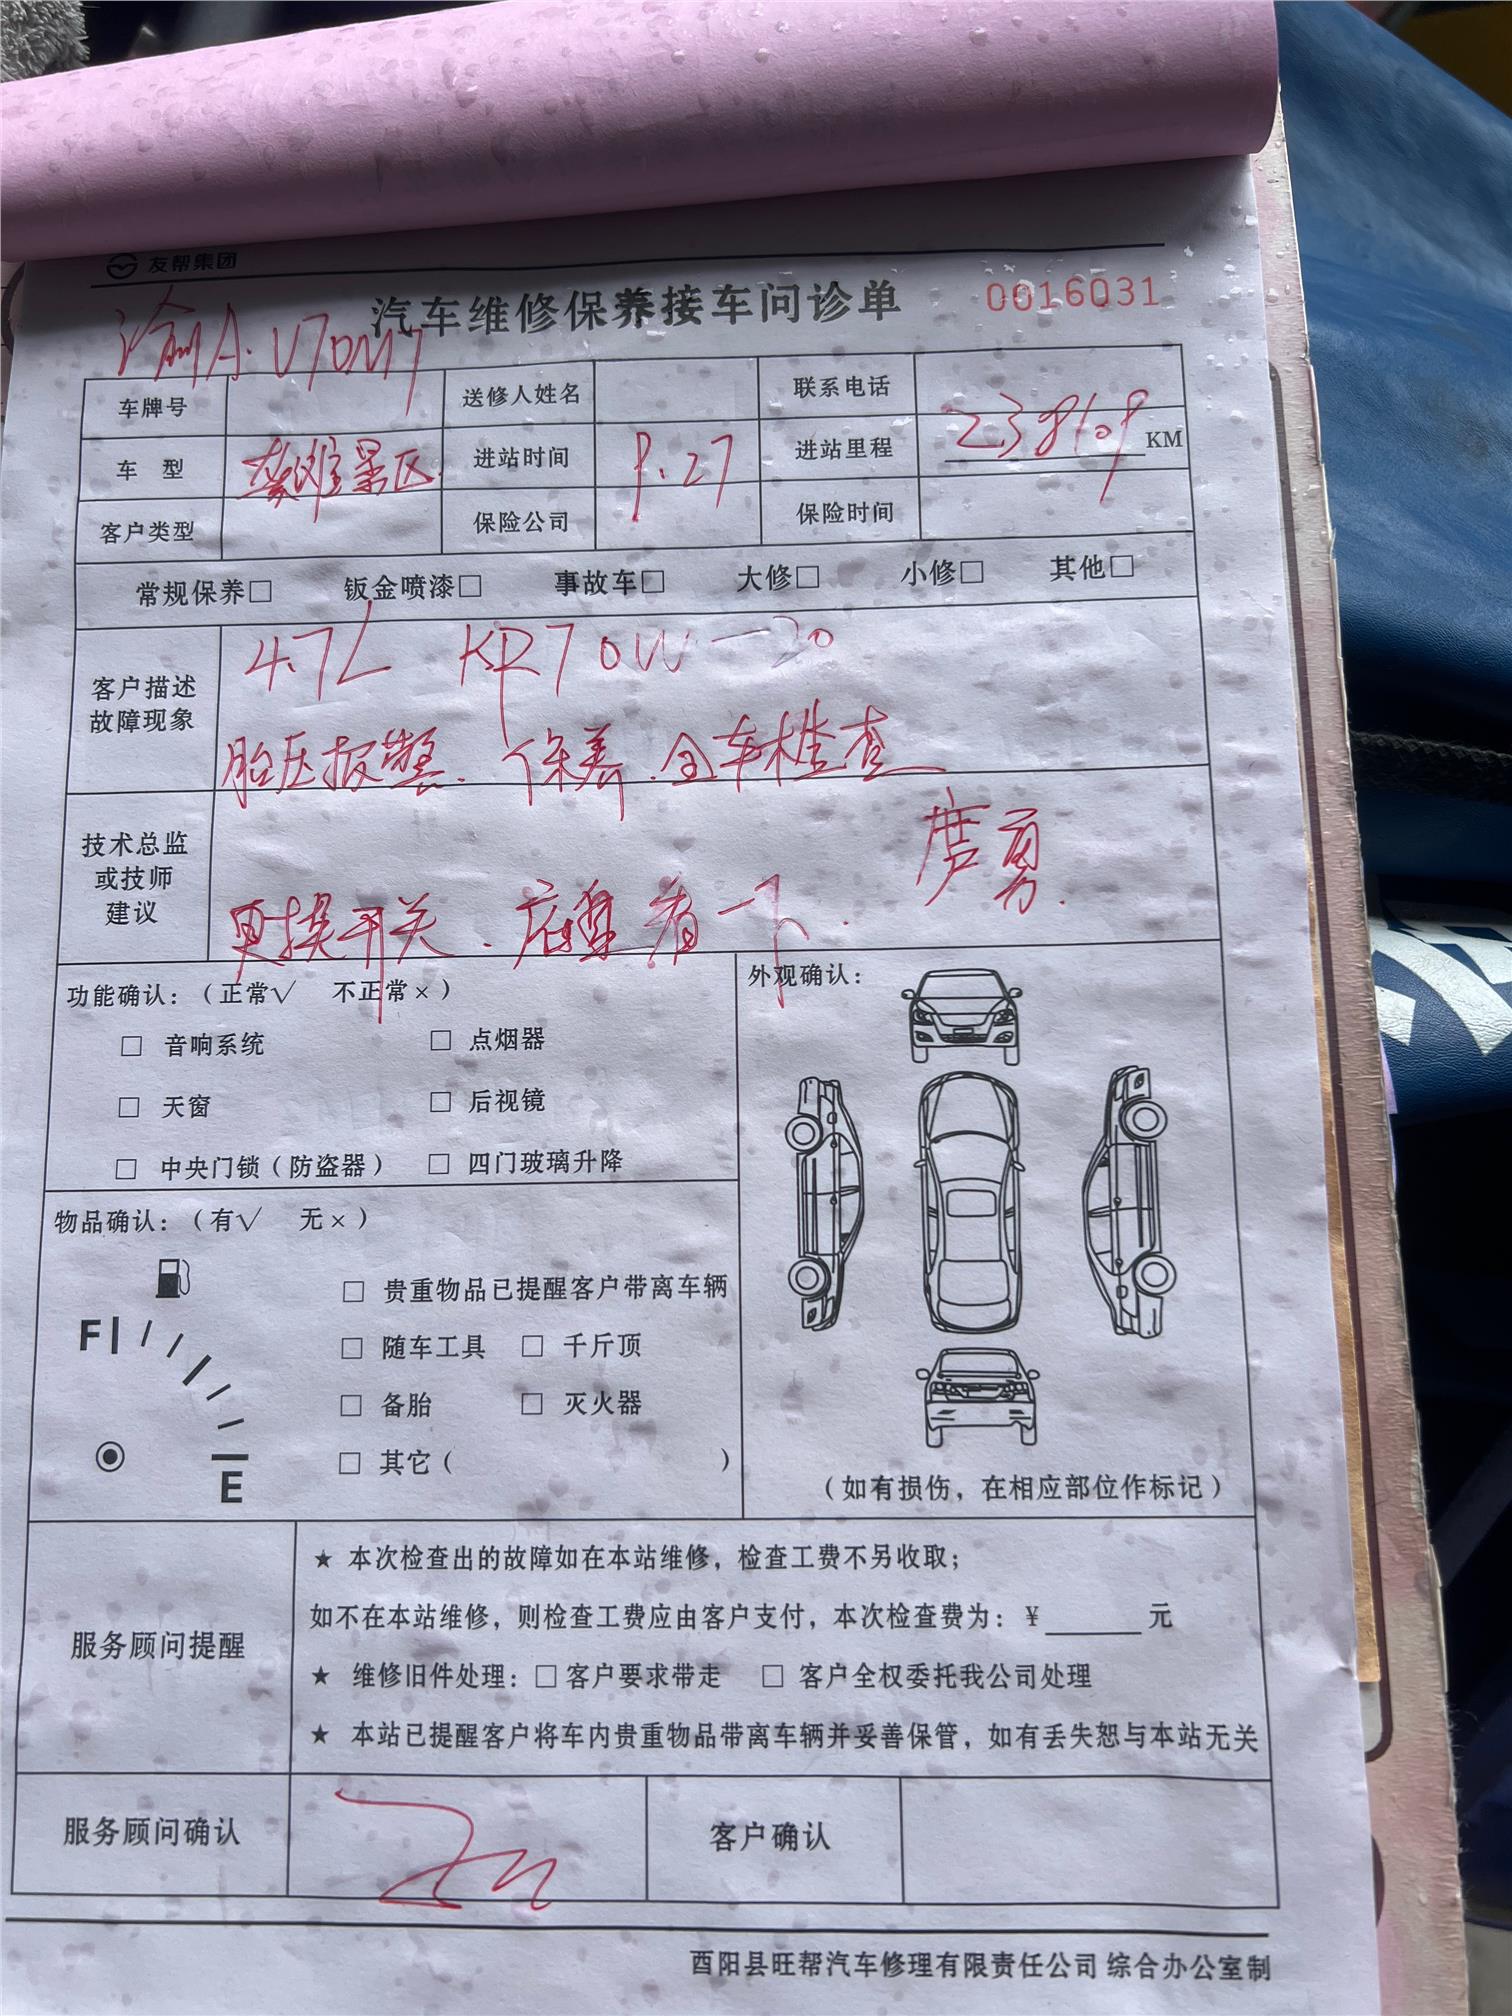 友帮集团
汽车维修保养接车问诊单 0016031
渝A·U70M7
车牌号 送修人姓名 联系电话
车 型 龚滩景区 进站时间 9.27 进站里程 238109 KM
客户类型 保险公司 保险时间
常规保养□ 钣金喷漆□ 事故车□ 大修□ 小修□ 其他□
客户描述
故障现象
4.7L KR7 0W-20
胎压报警.保养.全车检查
技术总监
或技师
建议
更换开关.底盘看一下.
勇.
功能确认:(正常√ 不正常×)
□ 音响系统 □ 点烟器
□ 天窗 □ 后视镜
□ 中央门锁(防盗器) □ 四门玻璃升降
外观确认:
(如有损伤,在相应部位作标记)
物品确认:(有√ 无×)
F
E
□ 贵重物品已提醒客户带离车辆
□ 随车工具 □ 千斤顶
□ 备胎 □ 灭火器
□ 其它( )
服务顾问提醒
★ 本次检查出的故障如在本站维修,检查工费不另收取;
如不在本站维修,则检查工费应由客户支付,本次检查费为:¥______元
★ 维修旧件处理:□客户要求带走 □ 客户全权委托我公司处理
★ 本站已提醒客户将车内贵重物品带离车辆并妥善保管,如有丢失恕与本站无关
服务顾问确认 客户确认
酉阳县旺帮汽车修理有限责任公司 综合办公室制